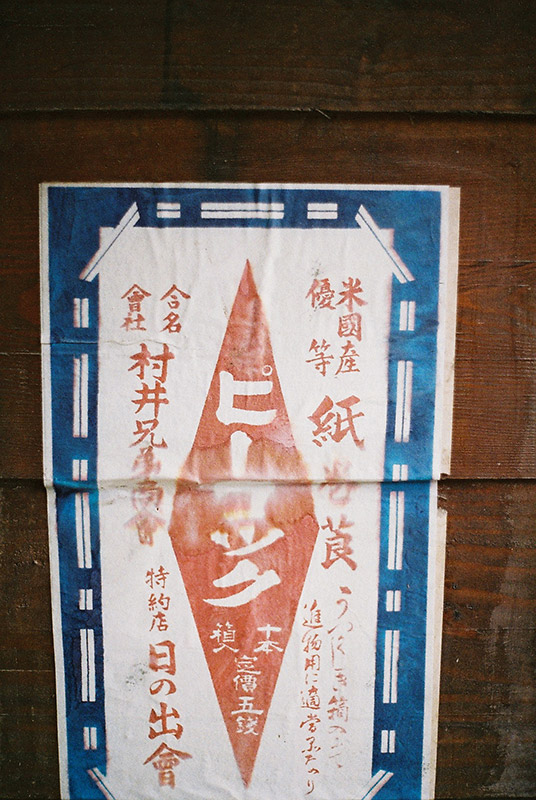 米國産
優等
紙巻莨
うつくしき箱入にて
進物用に適當
ピーコック
十本
箱入
定價五錢
合名
會社
村井兄弟商會
特約店
日の出會